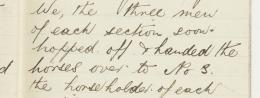 We, the three men
of each section soon
hopped off & handed the
horses over to No 3.
the horseholder of each